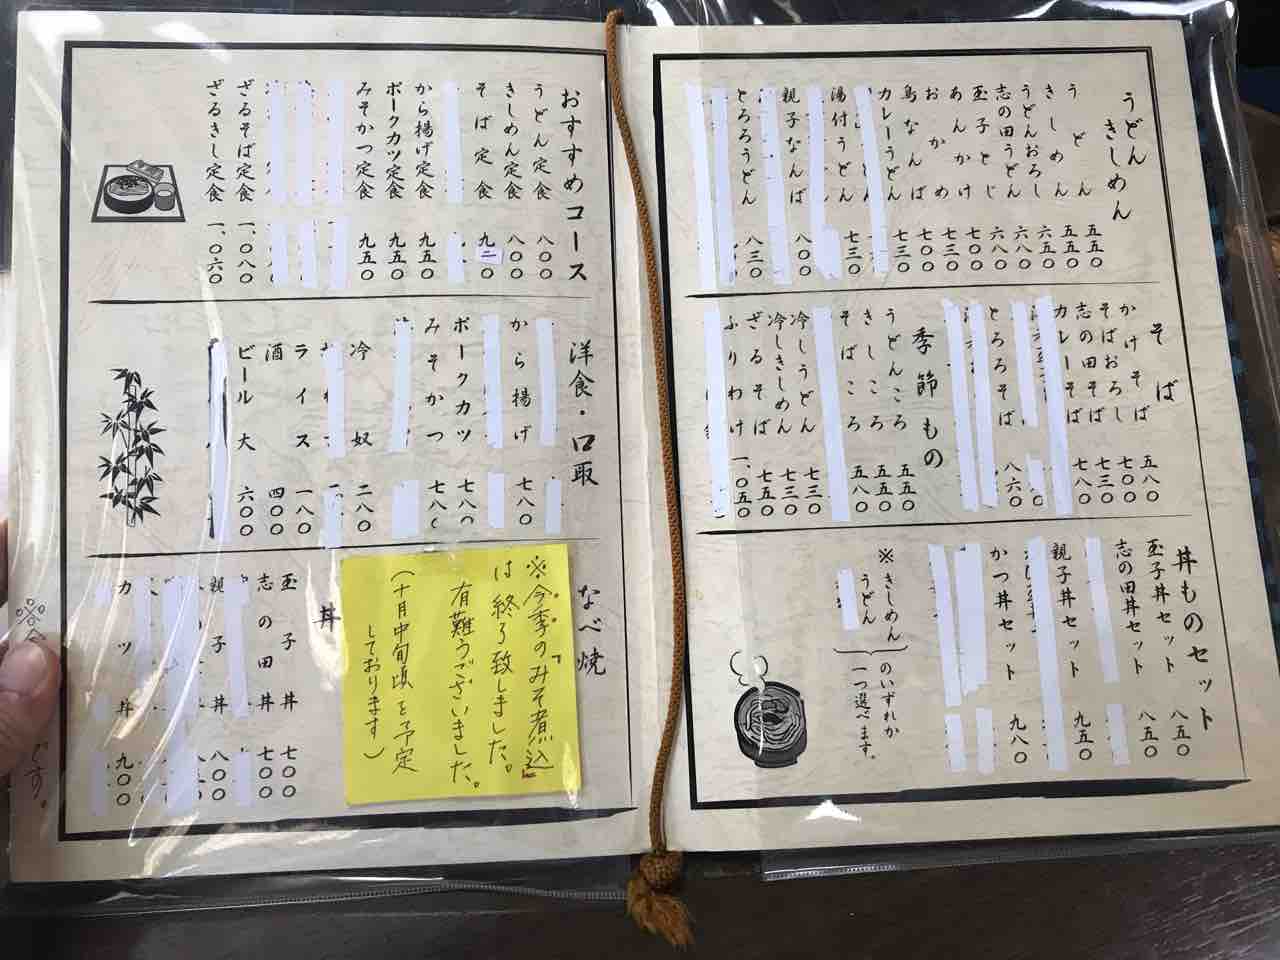 うどん
きしめん
うどん 五五〇
きしめん 五五〇
うどんおろし 六五〇
志の田うどん 六八〇
玉子とじ 六八〇
あんかけ 七〇〇
おかめ 七三〇
鳥なんば 七〇〇
カレーうどん 七三〇
湯付うどん 七三〇
親子なんば 八〇〇
とろろうどん 八三〇
そば
かけそば 五八〇
そばおろし 七〇〇
志の田そば 七三〇
カレーそば 七八〇
とろろそば 八六〇
季節もの
うどんころ 五五〇
きしころ 五五〇
そばころ 五八〇
冷しうどん 七三〇
冷しきしめん 七三〇
ざるそば 七五〇
ふりわけ 一、〇五〇
丼ものセット
玉子丼セット 八五〇
志の田丼セット 八五〇
親子丼セット 九五〇
かつ丼セット 九八〇
※きしめん
うどん
のいずれか
一つ選べます。
おすすめコース
うどん定食 八〇〇
きしめん定食 八〇〇
そば定食 九二〇
から揚げ定食 九五〇
ポークカツ定食 九五〇
みそかつ定食 九五〇
ざるそば定食 一、〇八〇
ざるきし定食 一、〇六〇
洋食・口取
から揚げ 七八〇
ポークカツ 七八〇
みそかつ 七八〇
冷奴 二八〇
ライス 一八〇
酒 四〇〇
ビール大 六〇〇
なべ焼
※今季の「みそ煮込」
は終了致しました。
有難うございました。
(十月中旬頃を予定
しております)
丼
玉子丼 七〇〇
志の田丼 七〇〇
親子丼 八〇〇
カツ丼 九〇〇
です。